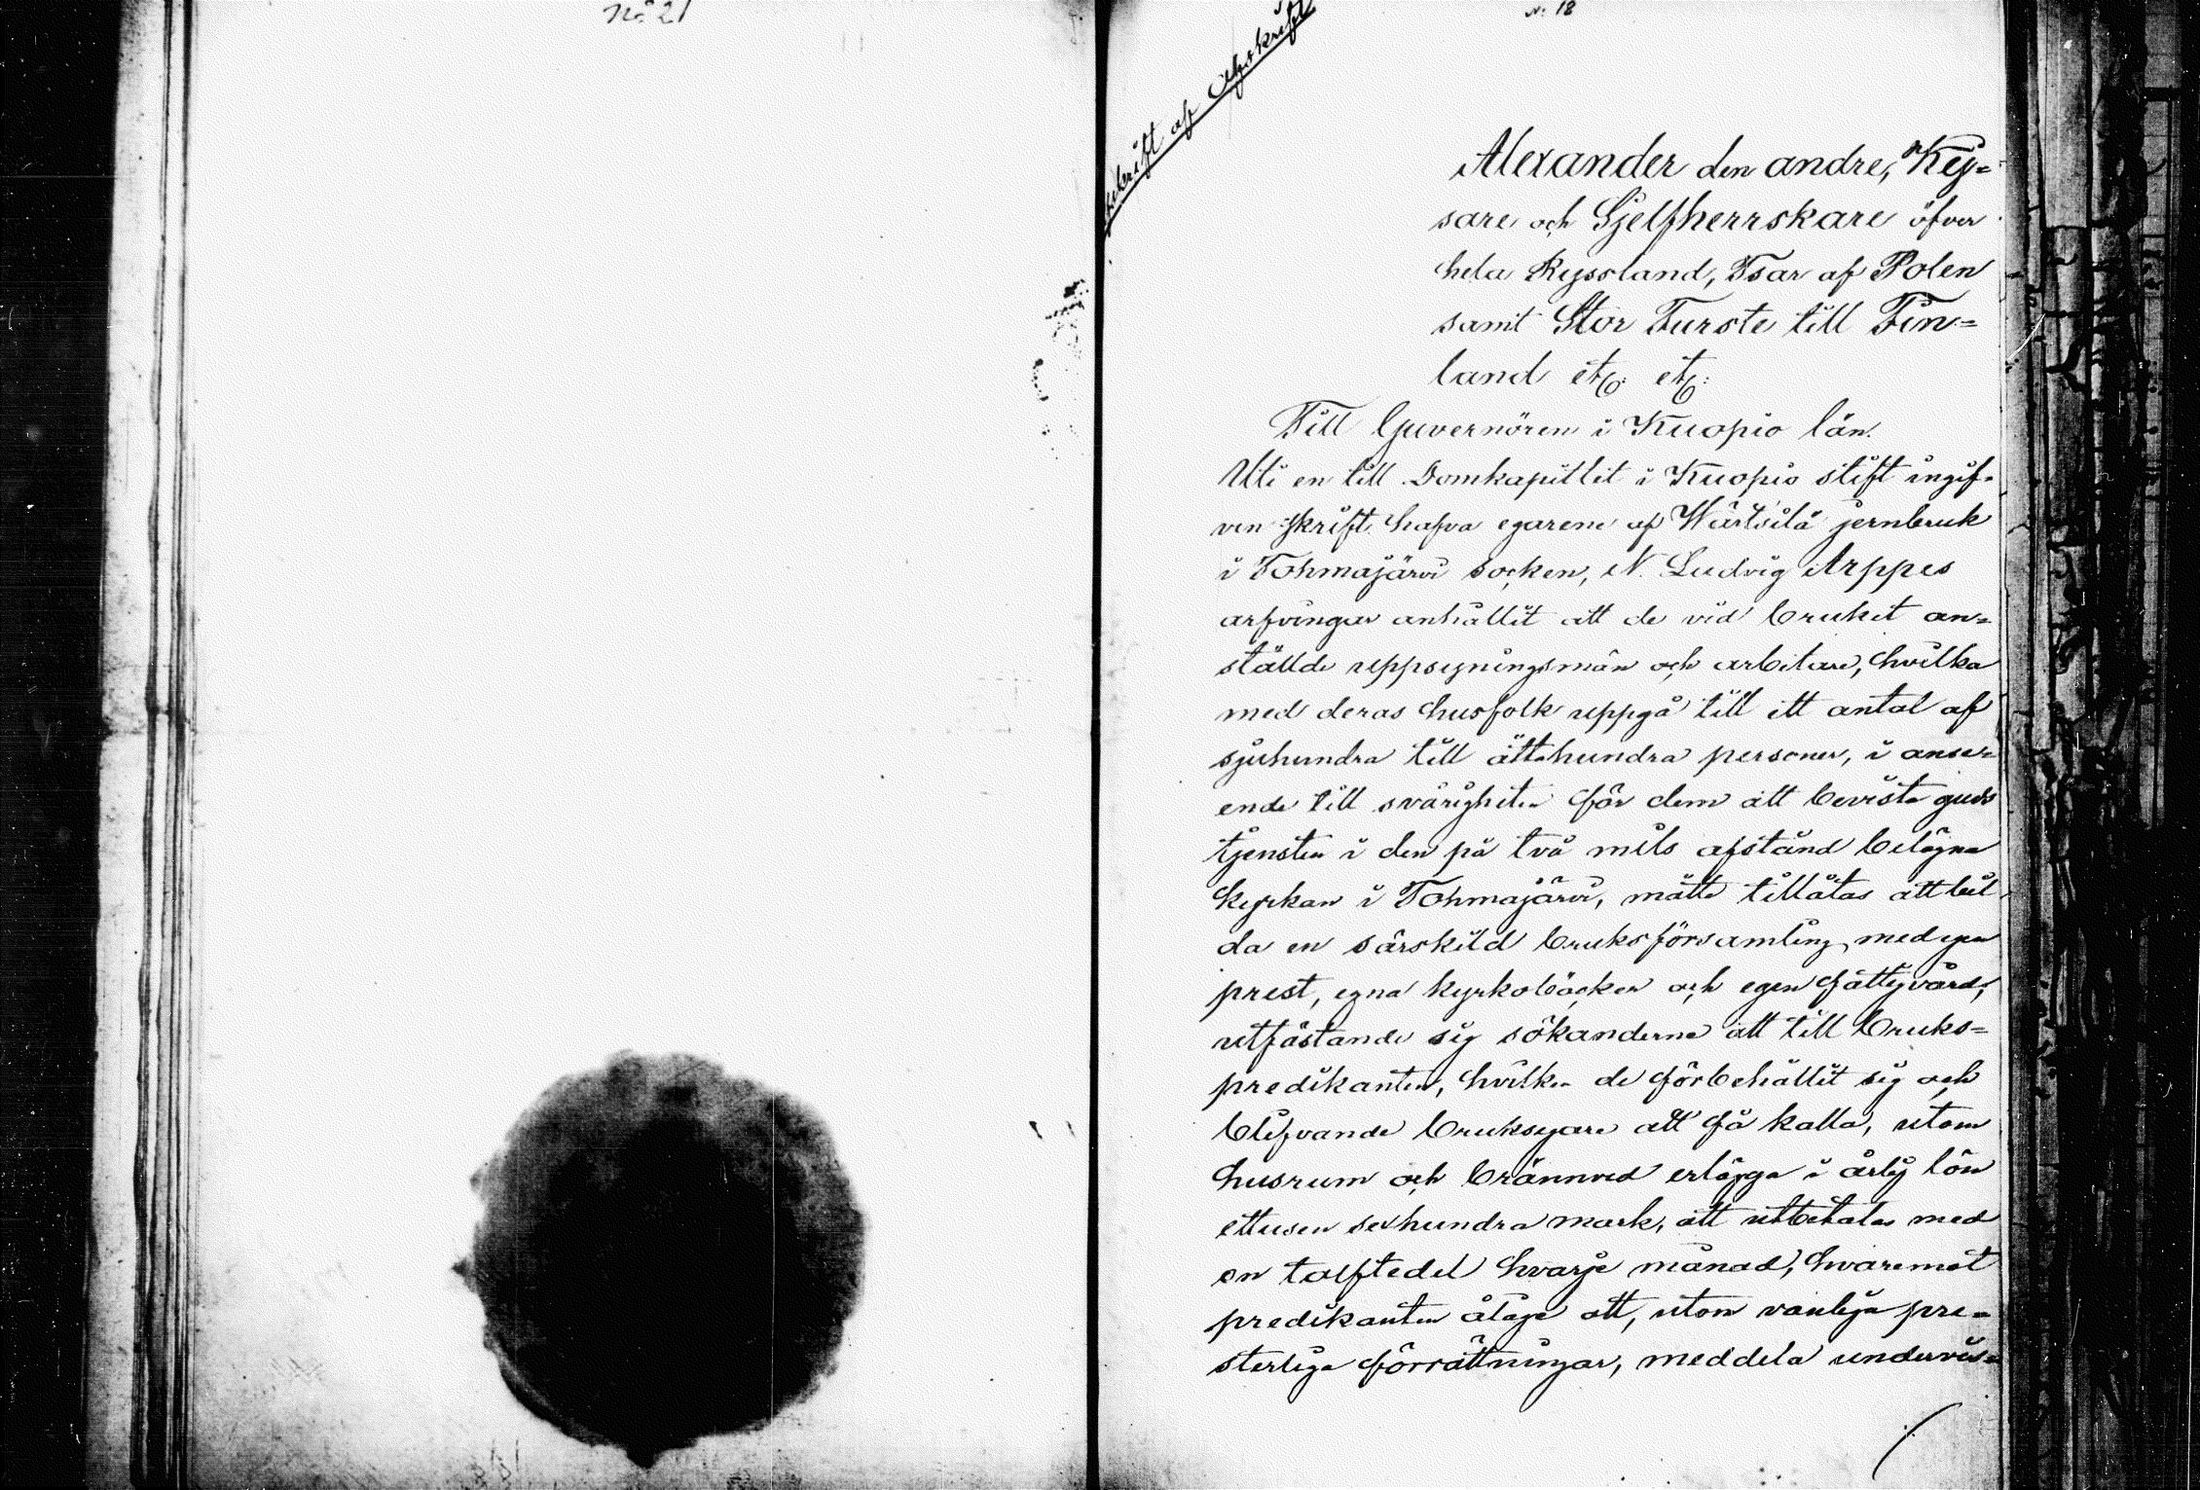 No 21
N: 18
Afskrift af Afskrift
Alexander den andre, Kej=
sare och Sjelfherrskare öfver
hela Ryssland, Tsar af Polen
samt Stor Furste till Fin=
land etc: etc:
Till Guvernören i Kuopio län.
Uti en till Domkapitlet i Kuopio stift ingif=
ven skrift hafva egarene af Wärtsilä jernbruk
i Tohmajärvi socken, N. Ludvig Arppes
arfvingar anhållit att de vid bruket an=
stälde uppsyningsmän och arbetare, hvilka
med deras husfolk uppgå till ett antal af
sjuhundra till åttahundra personer, i anse=
ende till svårigheten för dem att bevista guds
tjensten i den på två mils afstånd belägna
kyrkan i Tohmajärvi, måtte tillåtas att bil=
da en särskild bruksförsamling med egen
prest, egna kyrkoböcker och egen fattigvård,
utfästande sig sökanderne att till bruks=
predikanten, hvilken de förbehållit sig och
blifvande bruksegare att få kalla, utom
husrum och brännved erlägga i årlig lön
ettusen sexhundra mark, att utbetalas med
en tolftedel hvarje månad, hvaremot
predikanten ålåge att, utom vanliga pre=
sterliga förrättningar, meddela undervis=